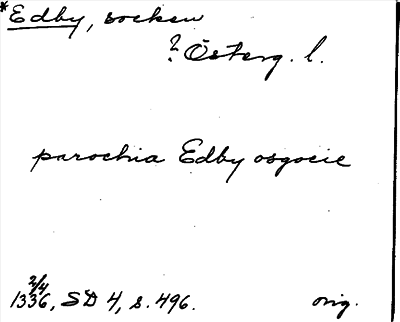 *Edby, socken
? Österg. l.
parochia Edby osgocie
2/4
1336, SD 4, s. 496. orig.